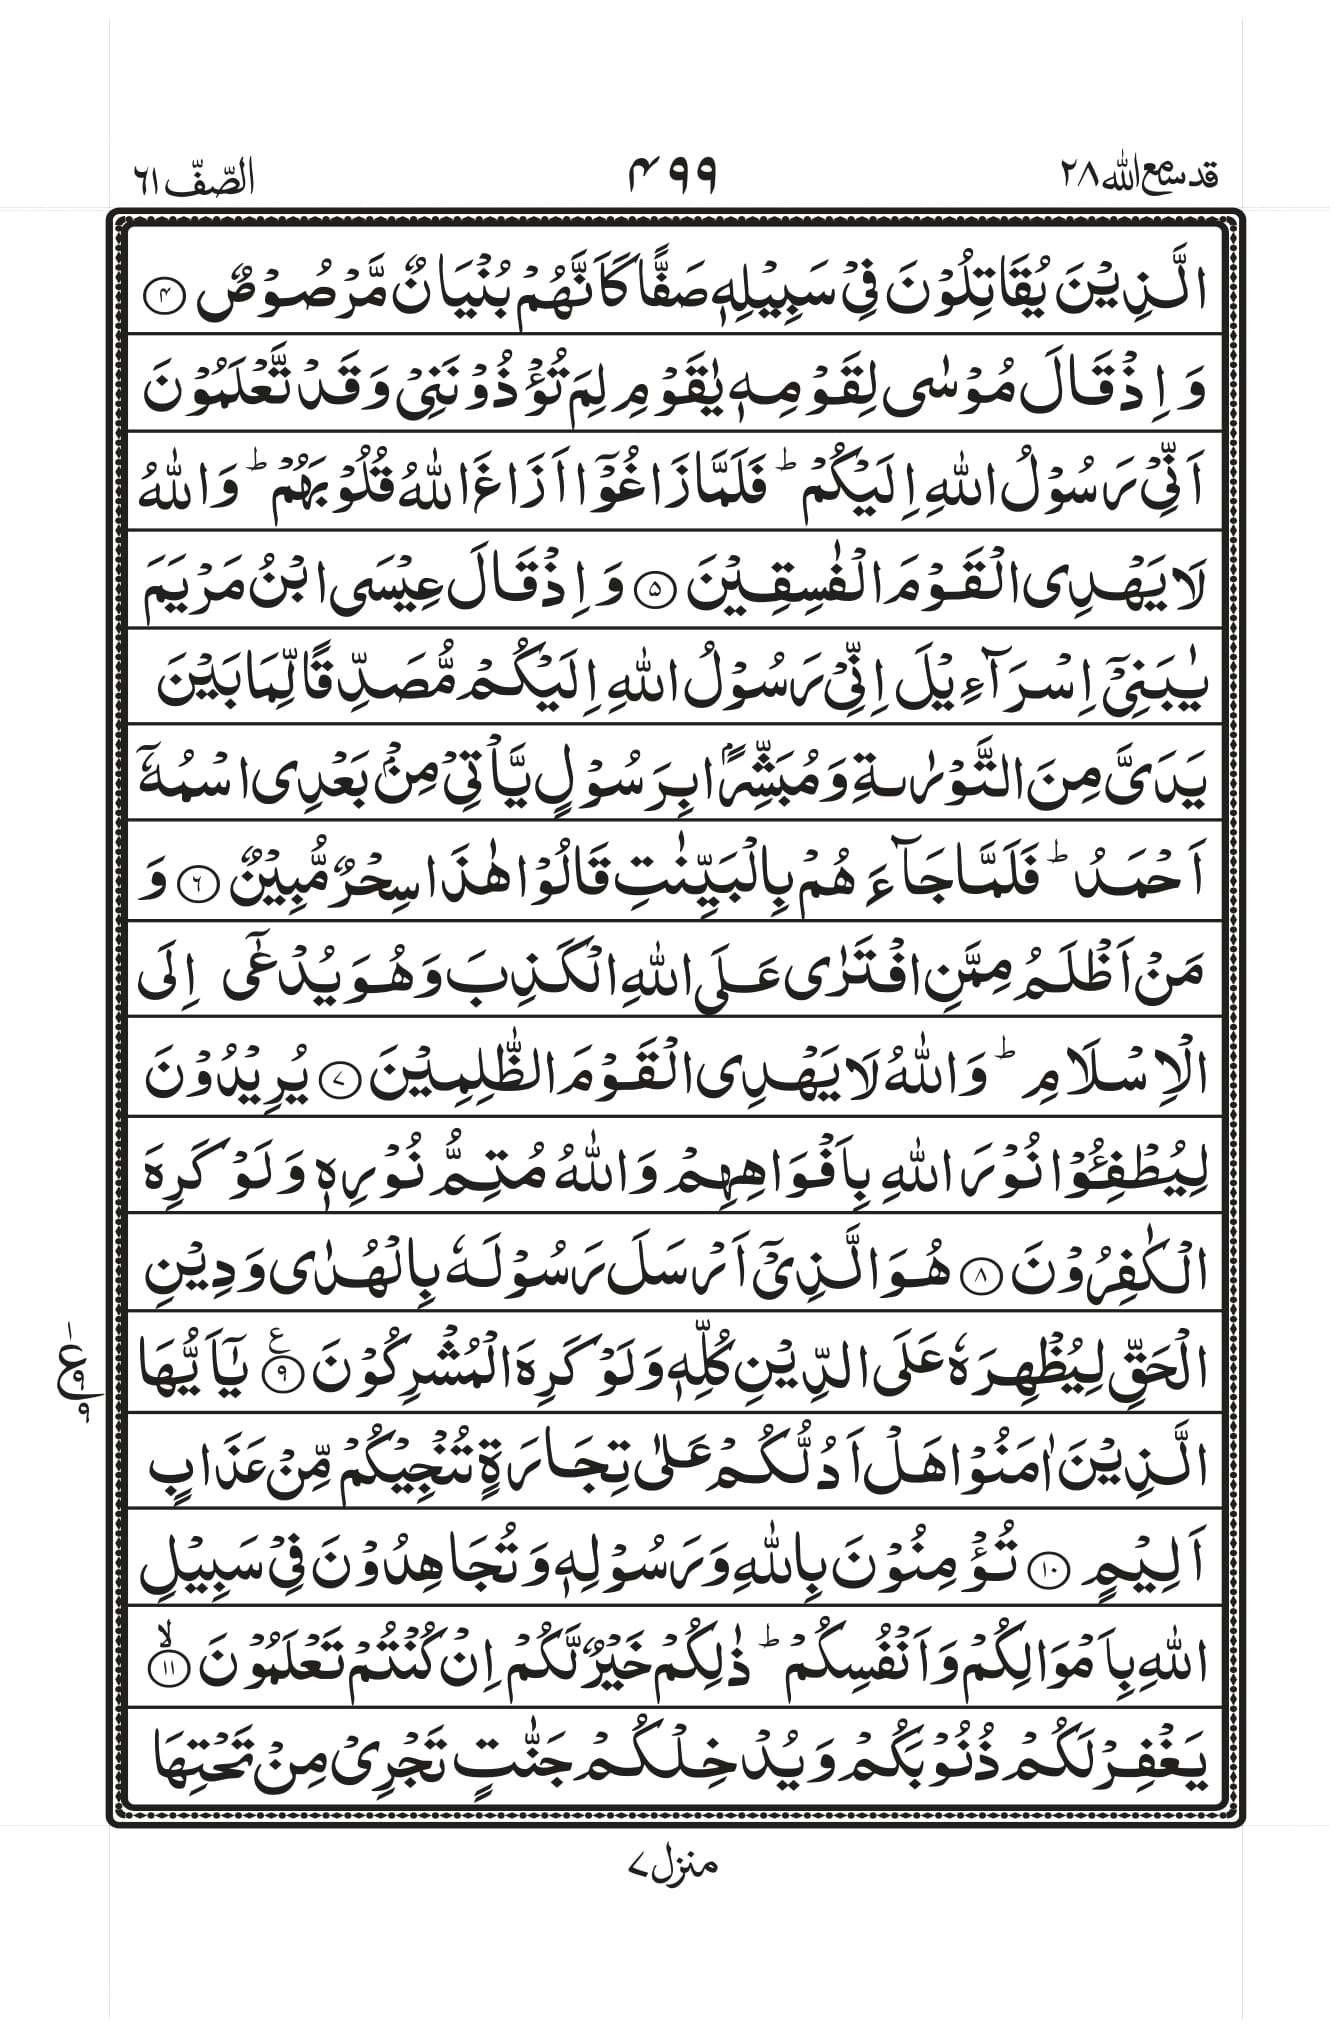 قد سمع الله ٢٨
٤٩٩
الصّفّ ٦١
الَّذِیْنَ یُقَاتِلُوْنَ فِیْ سَبِیْلِهٖ صَفًّا كَاَنَّهُمْ بُنْیَانٌ مَّرْصُوْصٌ ﴿۴﴾
وَ اِذْ قَالَ مُوْسٰی لِقَوْمِهٖ یٰقَوْمِ لِمَ تُؤْذُوْنَنِیْ وَ قَدْ تَّعْلَمُوْنَ
اَنِّیْ رَسُوْلُ اللّٰهِ اِلَیْكُمْ ؕ فَلَمَّا زَاغُوْۤا اَزَاغَ اللّٰهُ قُلُوْبَهُمْ ؕ وَ اللّٰهُ
لَا یَهْدِی الْقَوْمَ الْفٰسِقِیْنَ ﴿۵﴾ وَ اِذْ قَالَ عِیْسَی ابْنُ مَرْیَمَ
یٰبَنِیْۤ اِسْرَآءِیْلَ اِنِّیْ رَسُوْلُ اللّٰهِ اِلَیْكُمْ مُّصَدِّقًا لِّمَا بَیْنَ
یَدَیَّ مِنَ التَّوْرٰىةِ وَ مُبَشِّرًۢا بِرَسُوْلٍ یَّاْتِیْ مِنْۢ بَعْدِی اسْمُهٗۤ
اَحْمَدُ ؕ فَلَمَّا جَآءَ هُمْ بِالْبَیِّنٰتِ قَالُوْا هٰذَا سِحْرٌ مُّبِیْنٌ ﴿۶﴾ وَ
مَنْ اَظْلَمُ مِمَّنِ افْتَرٰی عَلَی اللّٰهِ الْكَذِبَ وَ هُوَ یُدْعٰۤی اِلَی
الْاِسْلَامِ ؕ وَ اللّٰهُ لَا یَهْدِی الْقَوْمَ الظّٰلِمِیْنَ ﴿۷﴾ یُرِیْدُوْنَ
لِیُطْفِـُٔوْا نُوْرَ اللّٰهِ بِاَفْوَاهِهِمْ وَ اللّٰهُ مُتِمُّ نُوْرِهٖ وَ لَوْ كَرِهَ
الْكٰفِرُوْنَ ﴿۸﴾ هُوَ الَّذِیْۤ اَرْسَلَ رَسُوْلَهٗ بِالْهُدٰی وَ دِیْنِ
الْحَقِّ لِیُظْهِرَهٗ عَلَی الدِّیْنِ كُلِّهٖ وَ لَوْ كَرِهَ الْمُشْرِكُوْنَ ﴿۹﴾ ع یٰۤاَیُّهَا
الَّذِیْنَ اٰمَنُوْا هَلْ اَدُلُّكُمْ عَلٰی تِجَارَةٍ تُنْجِیْكُمْ مِّنْ عَذَابٍ
اَلِیْمٍ ﴿۱۰﴾ تُؤْمِنُوْنَ بِاللّٰهِ وَ رَسُوْلِهٖ وَ تُجَاهِدُوْنَ فِیْ سَبِیْلِ
اللّٰهِ بِاَمْوَالِكُمْ وَ اَنْفُسِكُمْ ؕ ذٰلِكُمْ خَیْرٌ لَّكُمْ اِنْ كُنْتُمْ تَعْلَمُوْنَ ﴿۱۱﴾ۙ
یَغْفِرْ لَكُمْ ذُنُوْبَكُمْ وَ یُدْخِلْكُمْ جَنّٰتٍ تَجْرِیْ مِنْ تَحْتِهَا
منزل ٧